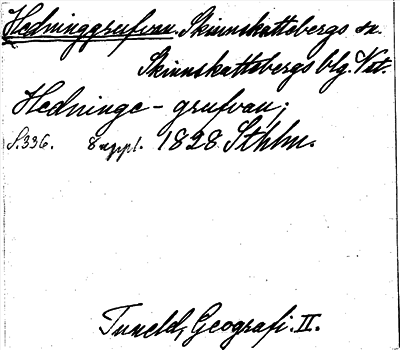 Hedninggrufvan. Skinnskattebergs sn.
Skinnskattebergs blg. Vst.
Hedninge-grufvan;
S.336. 8 uppl. 1828 Sthlm.
Tuneld, Geografi. II.